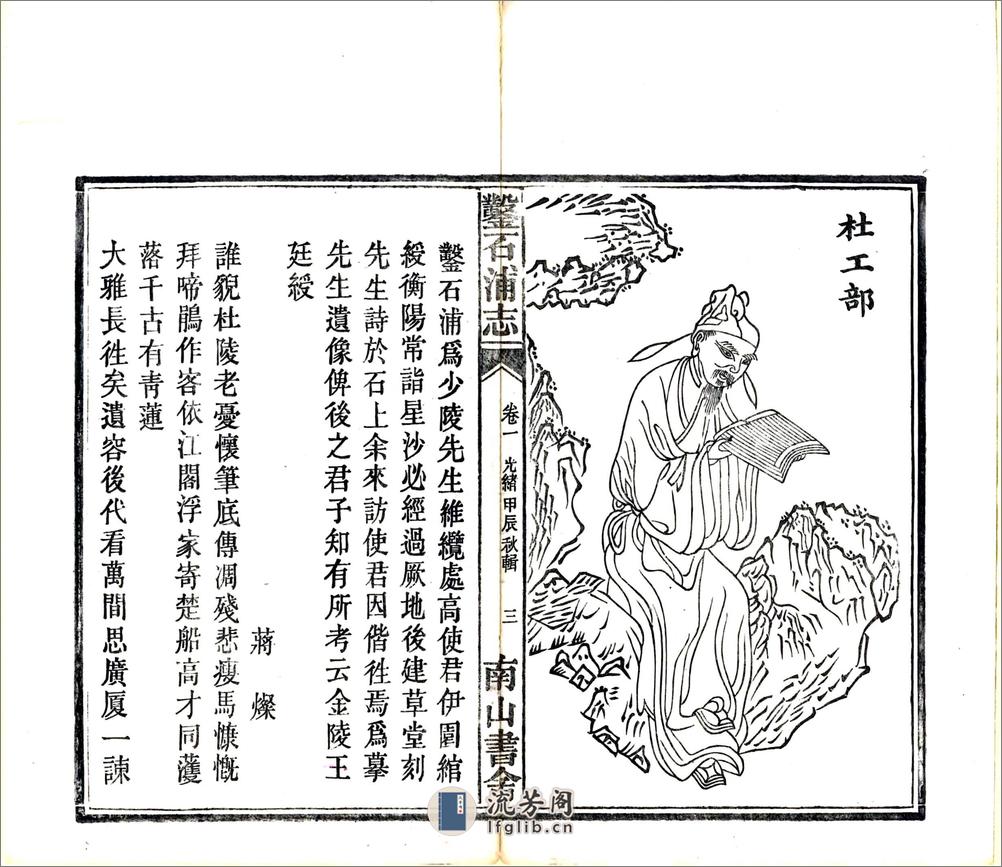 杜工部
鑿石浦志
卷一
光緒甲辰秋輯
三
南山書舍
鑿石浦爲少陵先生維纜處高使君伊園綰
綬衡陽常詣星沙必經過厥地後建草堂刻
先生詩於石上余來訪使君因偕徃焉爲摹
先生遺像俾後之君子知有所考云金陵王
廷綬
蔣燦
誰貌杜陵老憂懷筆底傳凋殘悲瘦馬慷慨
拜啼鵑作客依江閣浮家寄楚船高才同濩
落千古有靑蓮
大雅長徃矣遺容後代看萬間思廣厦一諫
流芳阁
lfglib.cn